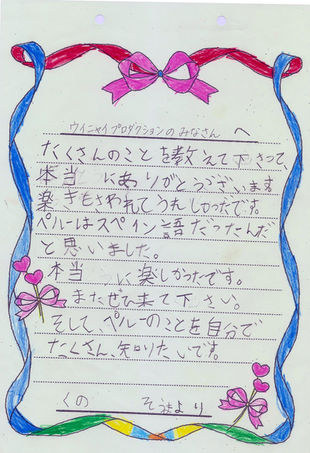 ウイニャイプロダクションのみなさん へ
たくさんのことを教えて下さって、
本当 にありがとうございます
楽 きもさわれてうれしかったです。
ペルーはスペイン語だったんだ
と思いました。
本当 に楽しかったです。
またぜひ来て下さい。
そして、ペルーのことを自分で
たくさん、知りたいです。
くの そ より